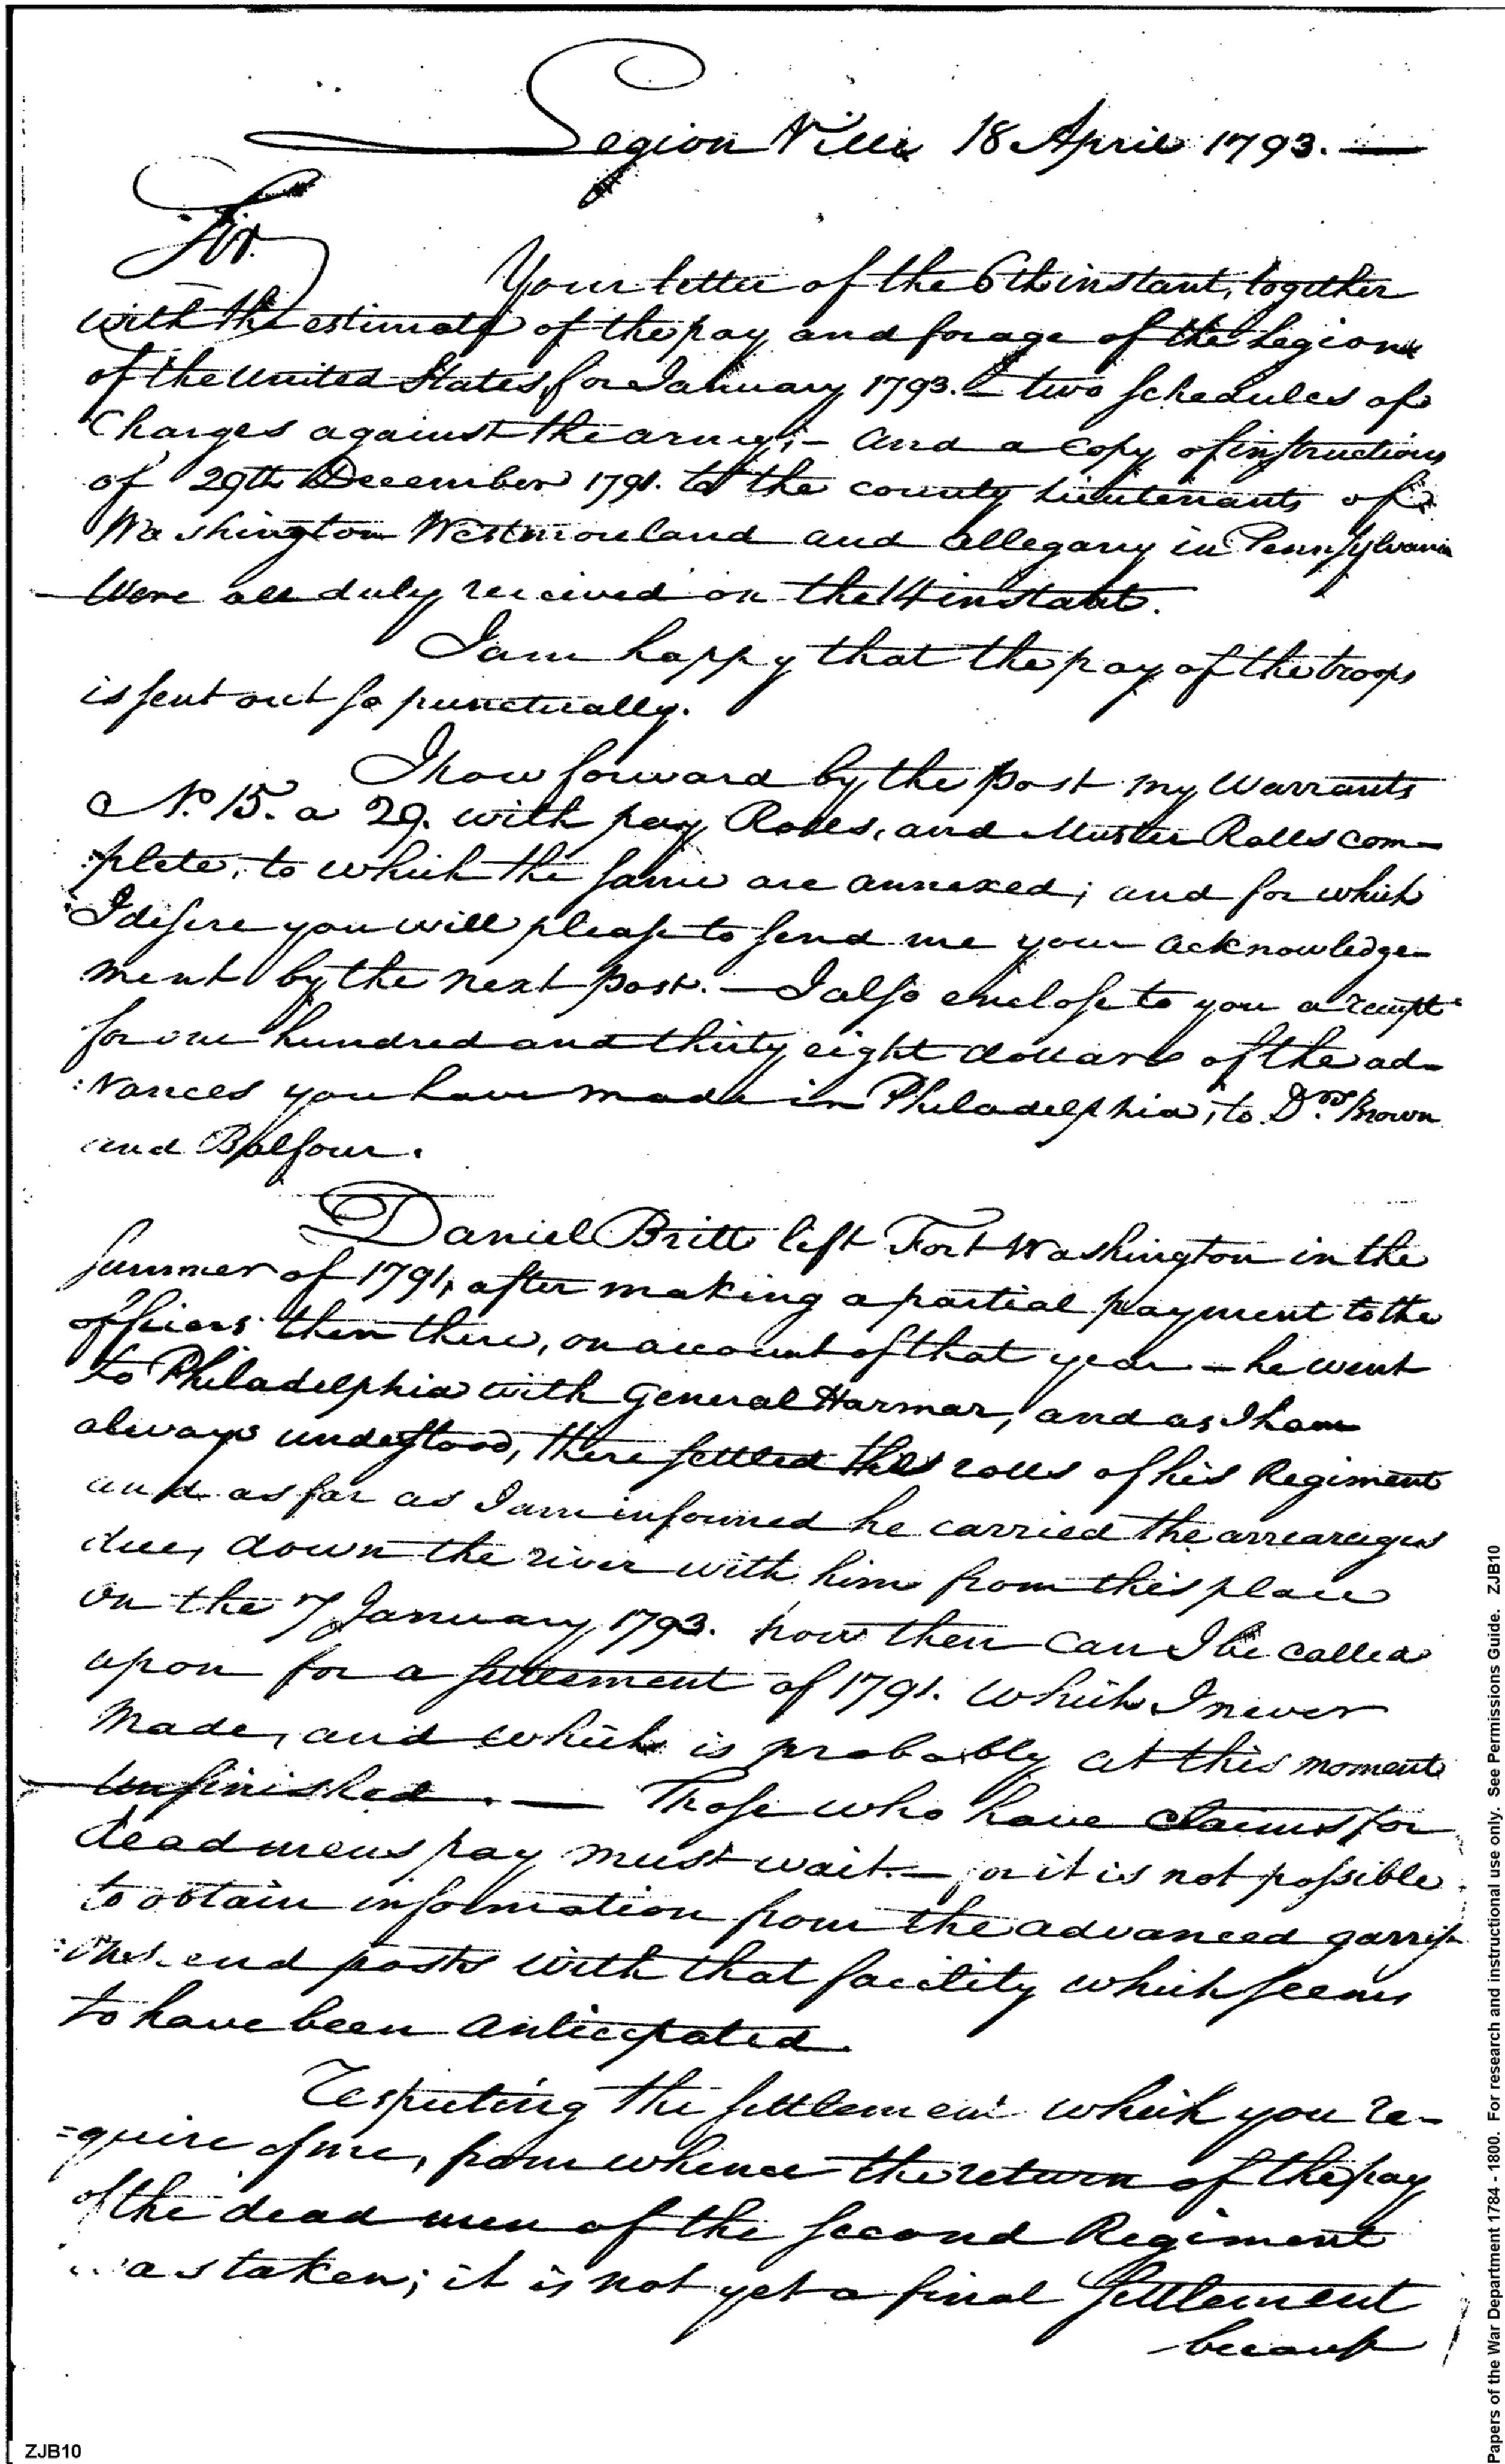 Legion Ville 18 April 1793.—
Sir.
Your letter of the 6th instant, together
with the estimate of the pay and forage of the Legion
of the United States, for January 1793.— two schedules of
Charges against the army;— and a copy of instructions
of 29th December 1791. to the county lieutenants of
Washington Westmorland and Allegany in Pennsylvania
Were all duly received on the 14 instant.
I am happy that the pay of the troops
is sent out so punctually.
I now forward by the post my Warrants
No. 15. a 29. with pay Rolls, and Muster Rolls com-
:plete, to which the same are annexed; and for which
I desire you will please to send me your acknowledge-
ment by the next post.— I also enclose to you a receipt
for one hundred and thirty eight dollars of the ad-
:vances you have made in Philadelphia, to Drs. Brown
and Balfour.
Daniel Britt left Fort Washington in the
summer of 1791, after making a partial payment to the
officers then there, on account of that year — he went
to Philadelphia with General Harmar, and as I have
always understood, there settled the rolls of his Regiment
and as far as I am informed he carried the arrearages
due, down the river with him from this place
on the 7 January 1793. how then can I be called
upon for a settlement of 1791. which I never
made, and which is probably at this moment
unfinished.— Those who have claims for
dead mens pay must wait.— or it is not possible
to obtain information from the advanced garris-
:ons. and posts with that facility which seems
to have been anticipated.
Respecting the settlement which you re-
=quire of me, from whence the return of the pay
of the dead men of the second Regiment
was taken; it is not yet a final settlement
because
ZJB10
Papers of the War Department 1784 - 1800. For research and instructional use only. See Permissions Guide. ZJB10